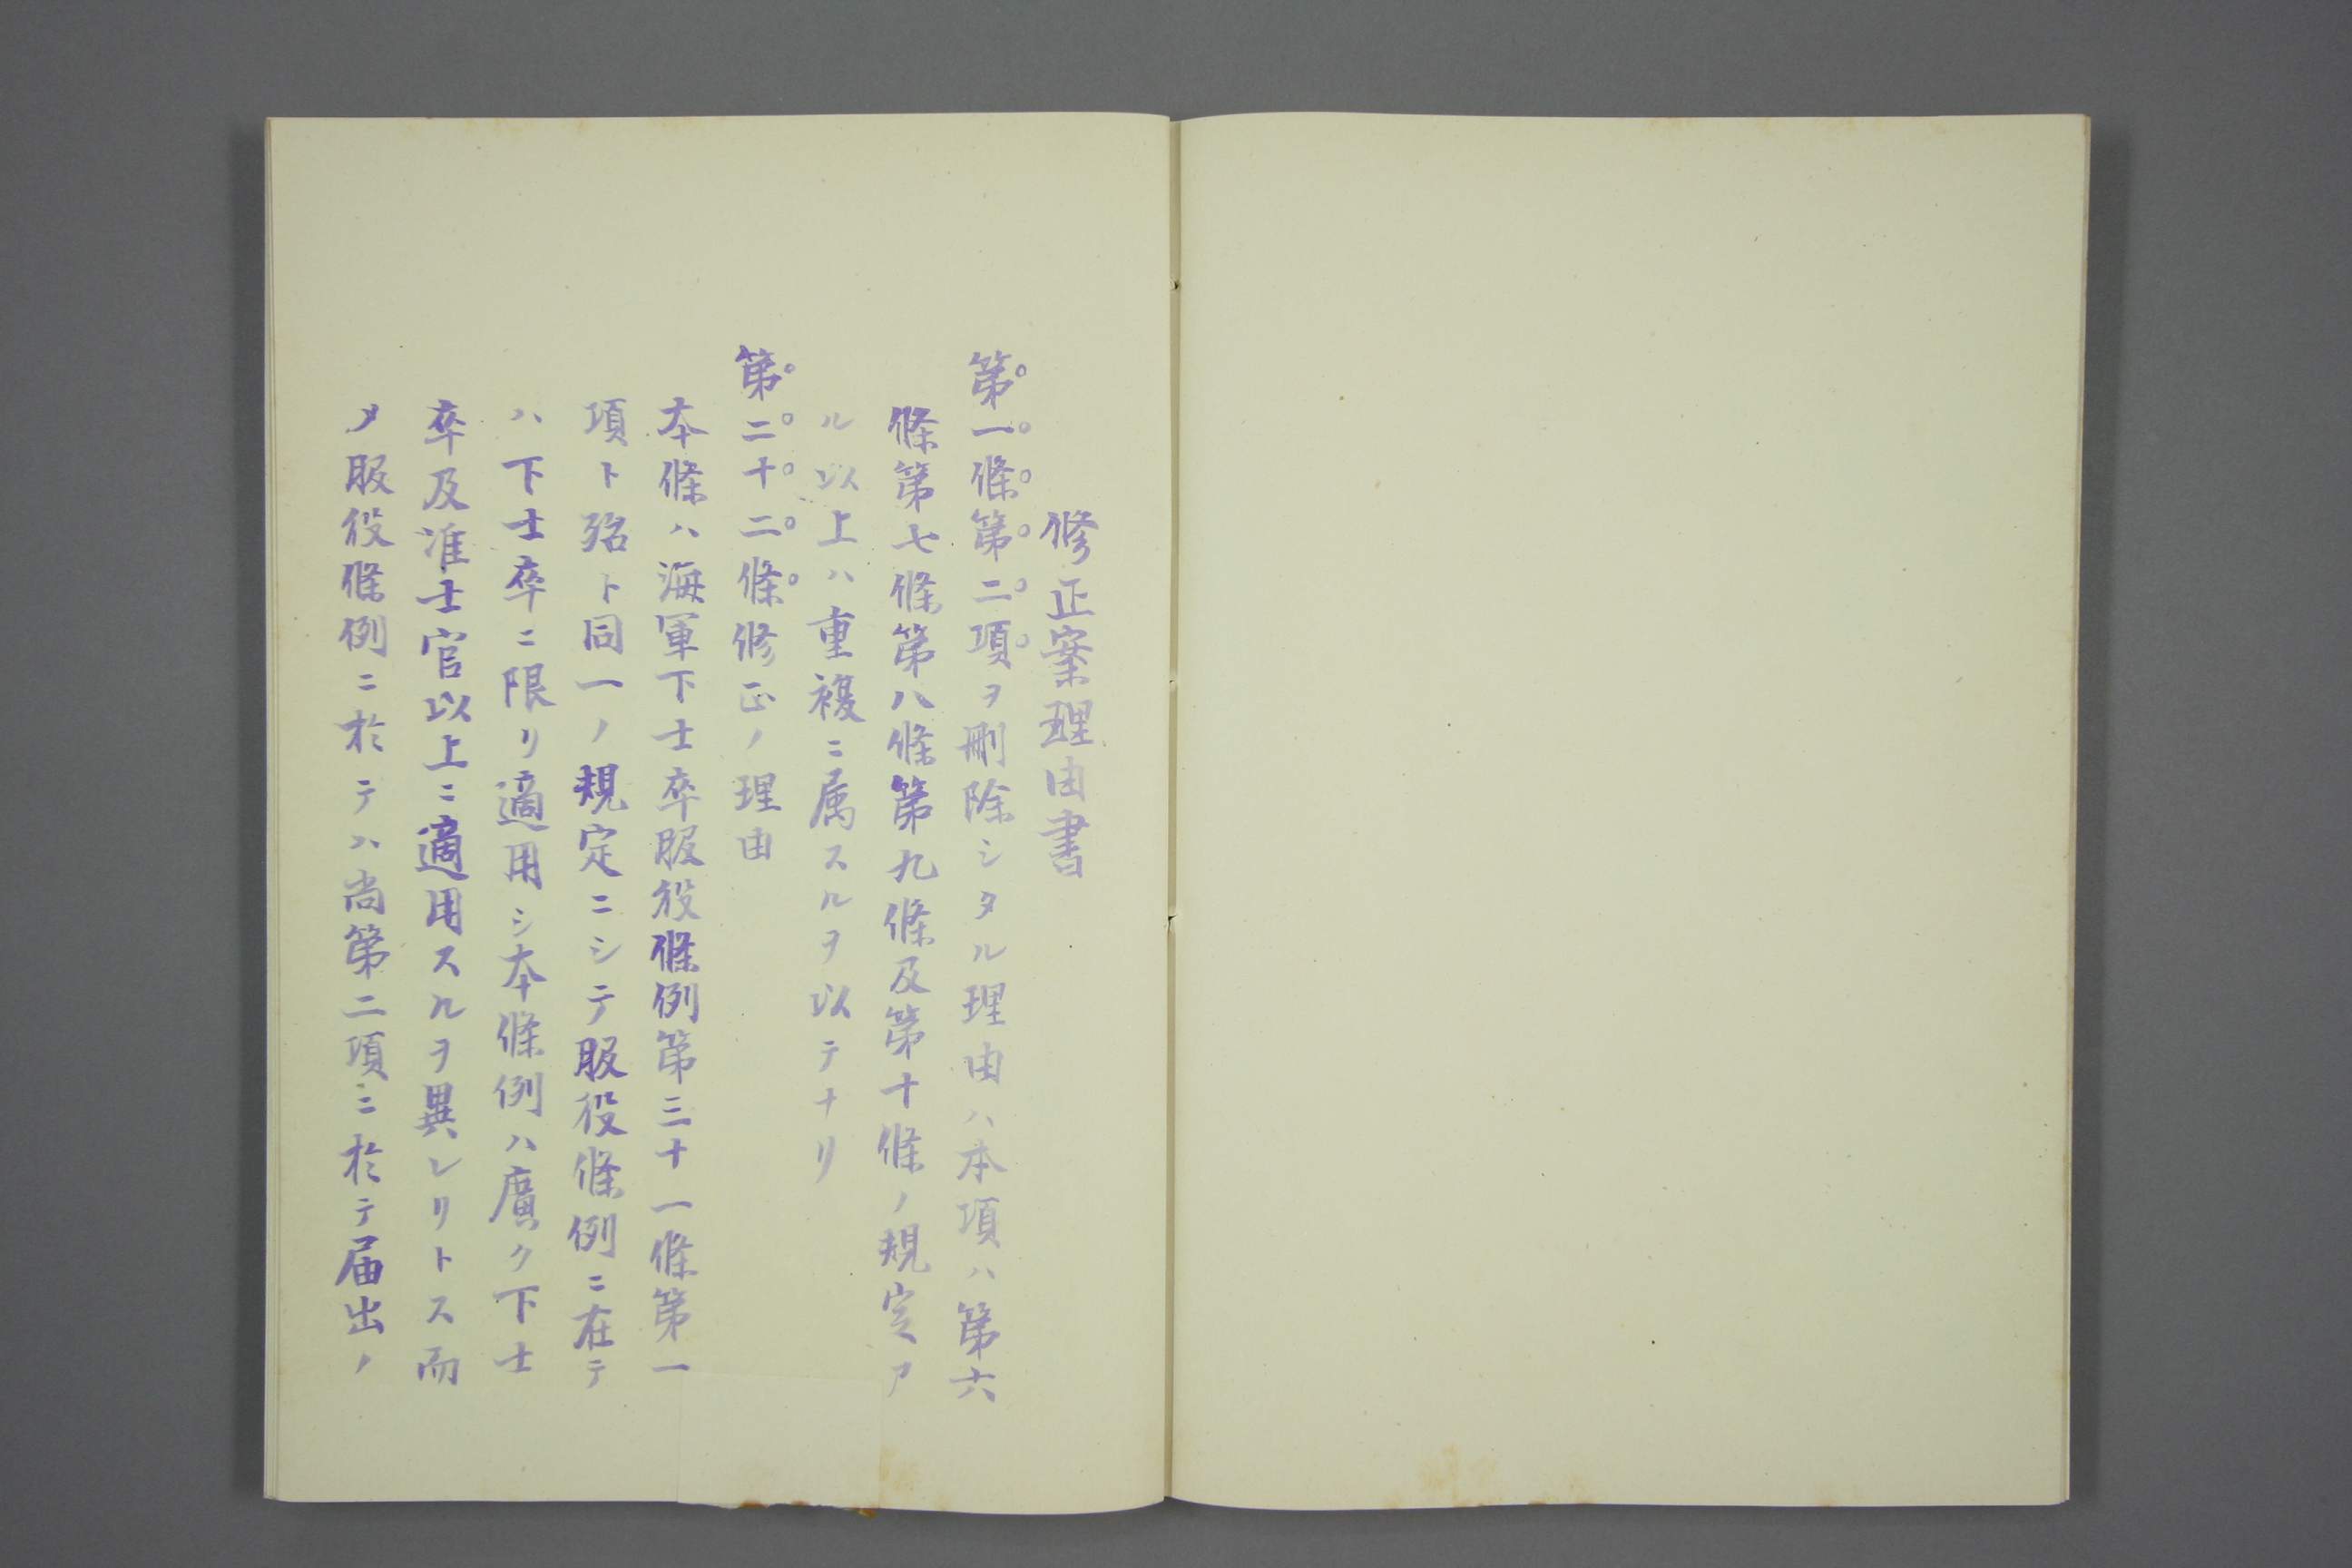 修正案理由書
第一條第二項ヲ刪除シタル理由ハ本項ハ第六
條第七條第八條第九條及第十條ノ規定ア
ル以上ハ重複ニ属スルヲ以テナリ
第二十二條修正ノ理由
本條ハ海軍下士卒服役條例第三十一條第一
項ト殆ト同一ノ規定ニシテ服役條例ニ在テ
ハ下士卒ニ限リ適用シ本條例ハ廣ク下士
卒及准士官以上ニ適用スルヲ異レリトス而
メ服役條例ニ於テハ尚第二項ニ於テ届出ノ